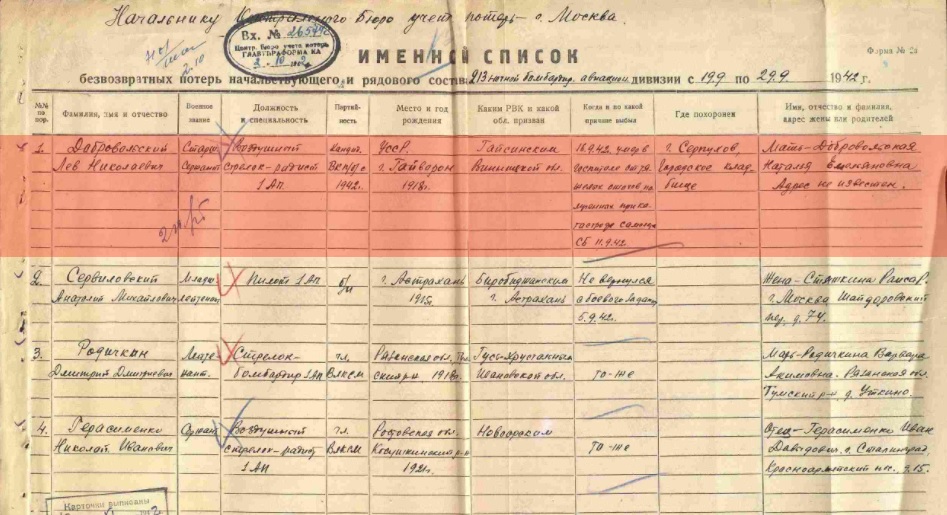 Начальнику Центрального Бюро учет потерь г. Москва.
Вх. №
Центр. бюро учета потерь
ГЛАВУПРАФОРМА КА
Форма № 2а
ИМЕННОЙ СПИСОК
безвозвратных потерь начальствующего и рядового состава 213 ночной бомбардир. авиацион дивизии с 19.9 по 29.9 1942 г.
№№ по пор. Фамилия, имя и отчество Военное звание Должность и специальность Партийность Место и год рождения Каким РВК и какой обл. призван Когда и по какой причине выбыл Где похоронен Имя, отчество и фамилия, адрес жены или родителей
1. Добровольский Старш. Воздушный канд. УССР. Гайсинским 18.9.42 умер г. Серпухов, Мать-Добровольская
Лев Николаевич Сержант Стрелок-радист ВКП(б) с г. Гайворон Винницкой обл. Городское клад Наталья Емельяновна
1 АП. 1942г. 1918г. бище Адрес не известен.
СБ 11.9.42
2. Сервиловский Младш. Пилот 1 АП б/п г. Астрахань Биробиджанским Не вернулся Жена-Сташкина Раиса
Анатолий Михайлович лейтенант 1915г. г. Астрахань с боевого задан г. Москва
5.9.42г. пер. д. 74.
3. Родичкин Лейте- Стрелок- чл. Рязанская обл. Гусь-Хрустальным Мать-Родичкина Варвара
Дмитрий Дмитриевич нант. бомбардир 1 АП ВЛКСМ 1918г. Ивановской обл. то-же Акимовна-Рязанская обл.
Тумский р-н д. Уткино.
4. Герасименко Сержант Воздушный чл. Ростовская обл. Отец-Герасименко Иван
Николай Иванович стрелок-радист ВЛКСМ р-н то-же Давыдович, г. Сталинград,
1 АП 1921г. Красноармейский пос. д. 15.
Карточки выписаны